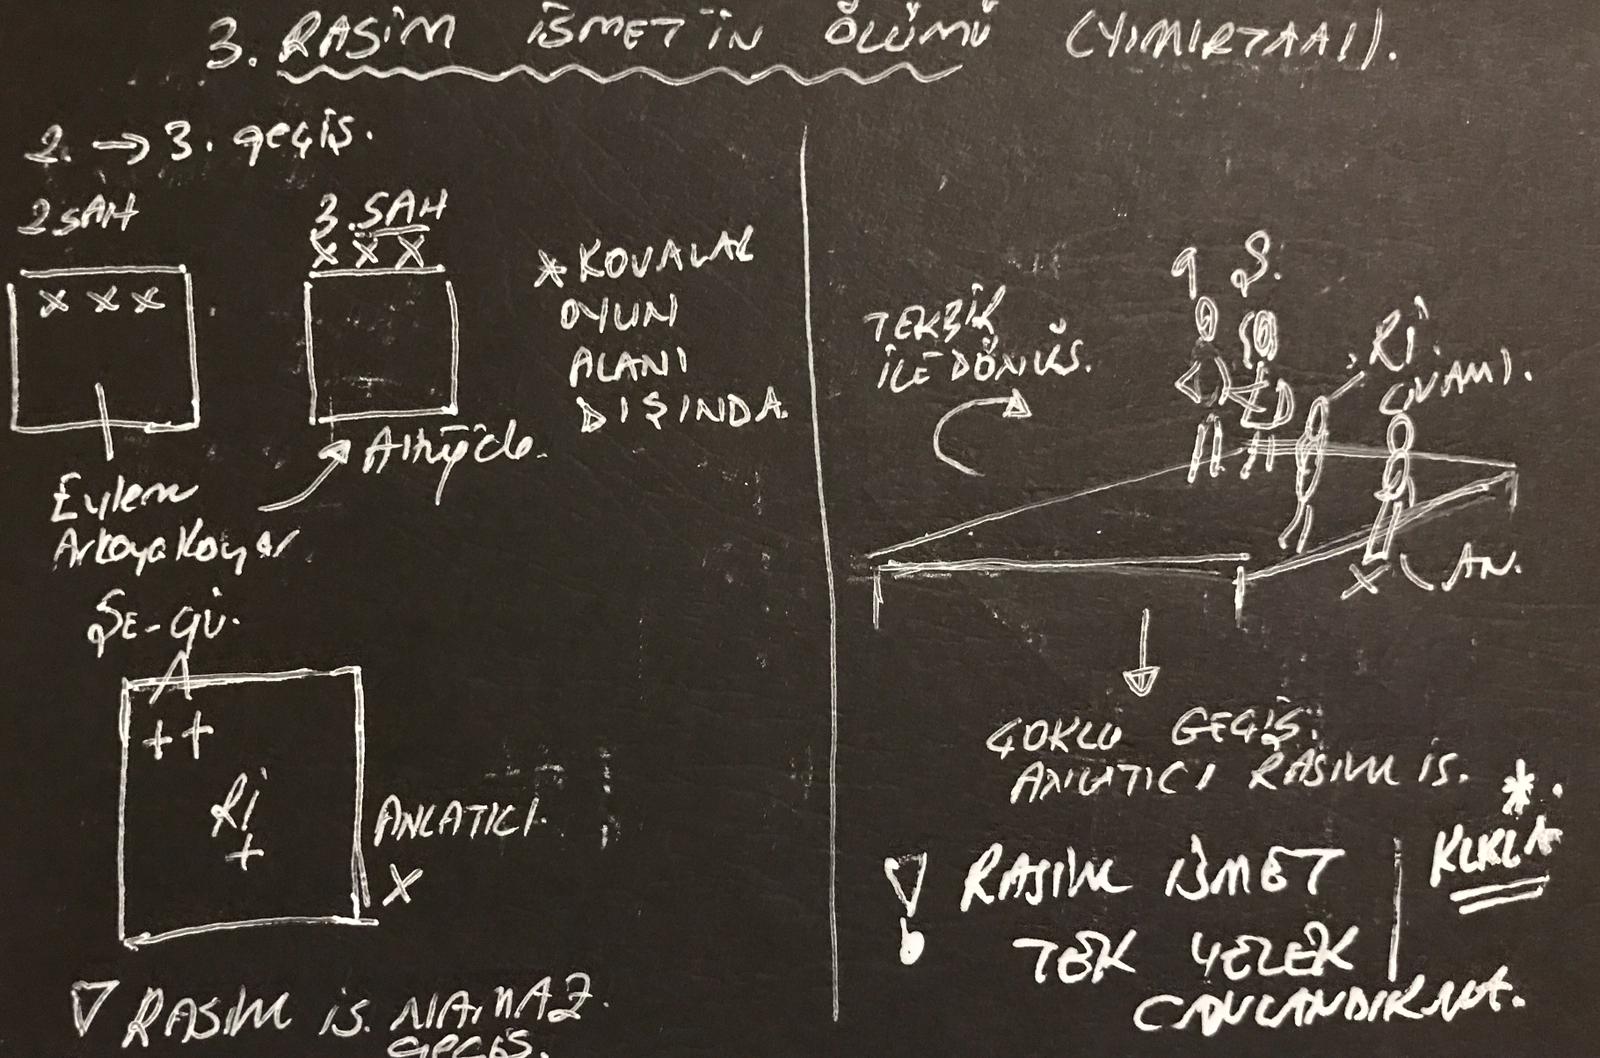 3. RASİM İSMET'İN ÖLÜMÜ (YIMIRTAAI).
2. → 3. geçiş.
2 SAH
3. SAH
x x x
x x x
* KOVALAR
OYUN
ALANI
DIŞINDA.
Eylem
Arkaya Koyar
ŞE-GÜ.
++
Rİ
+
ANLATICI.
x
RASİM İS. NAMAZ.
GEÇİŞ.
İLE DÖNÜŞ.
g Ş.
Rİ
x AN.
ÇOKLU GEÇİŞ.
ANLATICI RASİM İS. *.
! RASİM İSMET
TEK YELEK
CANLANDIRMA.
KUKLA